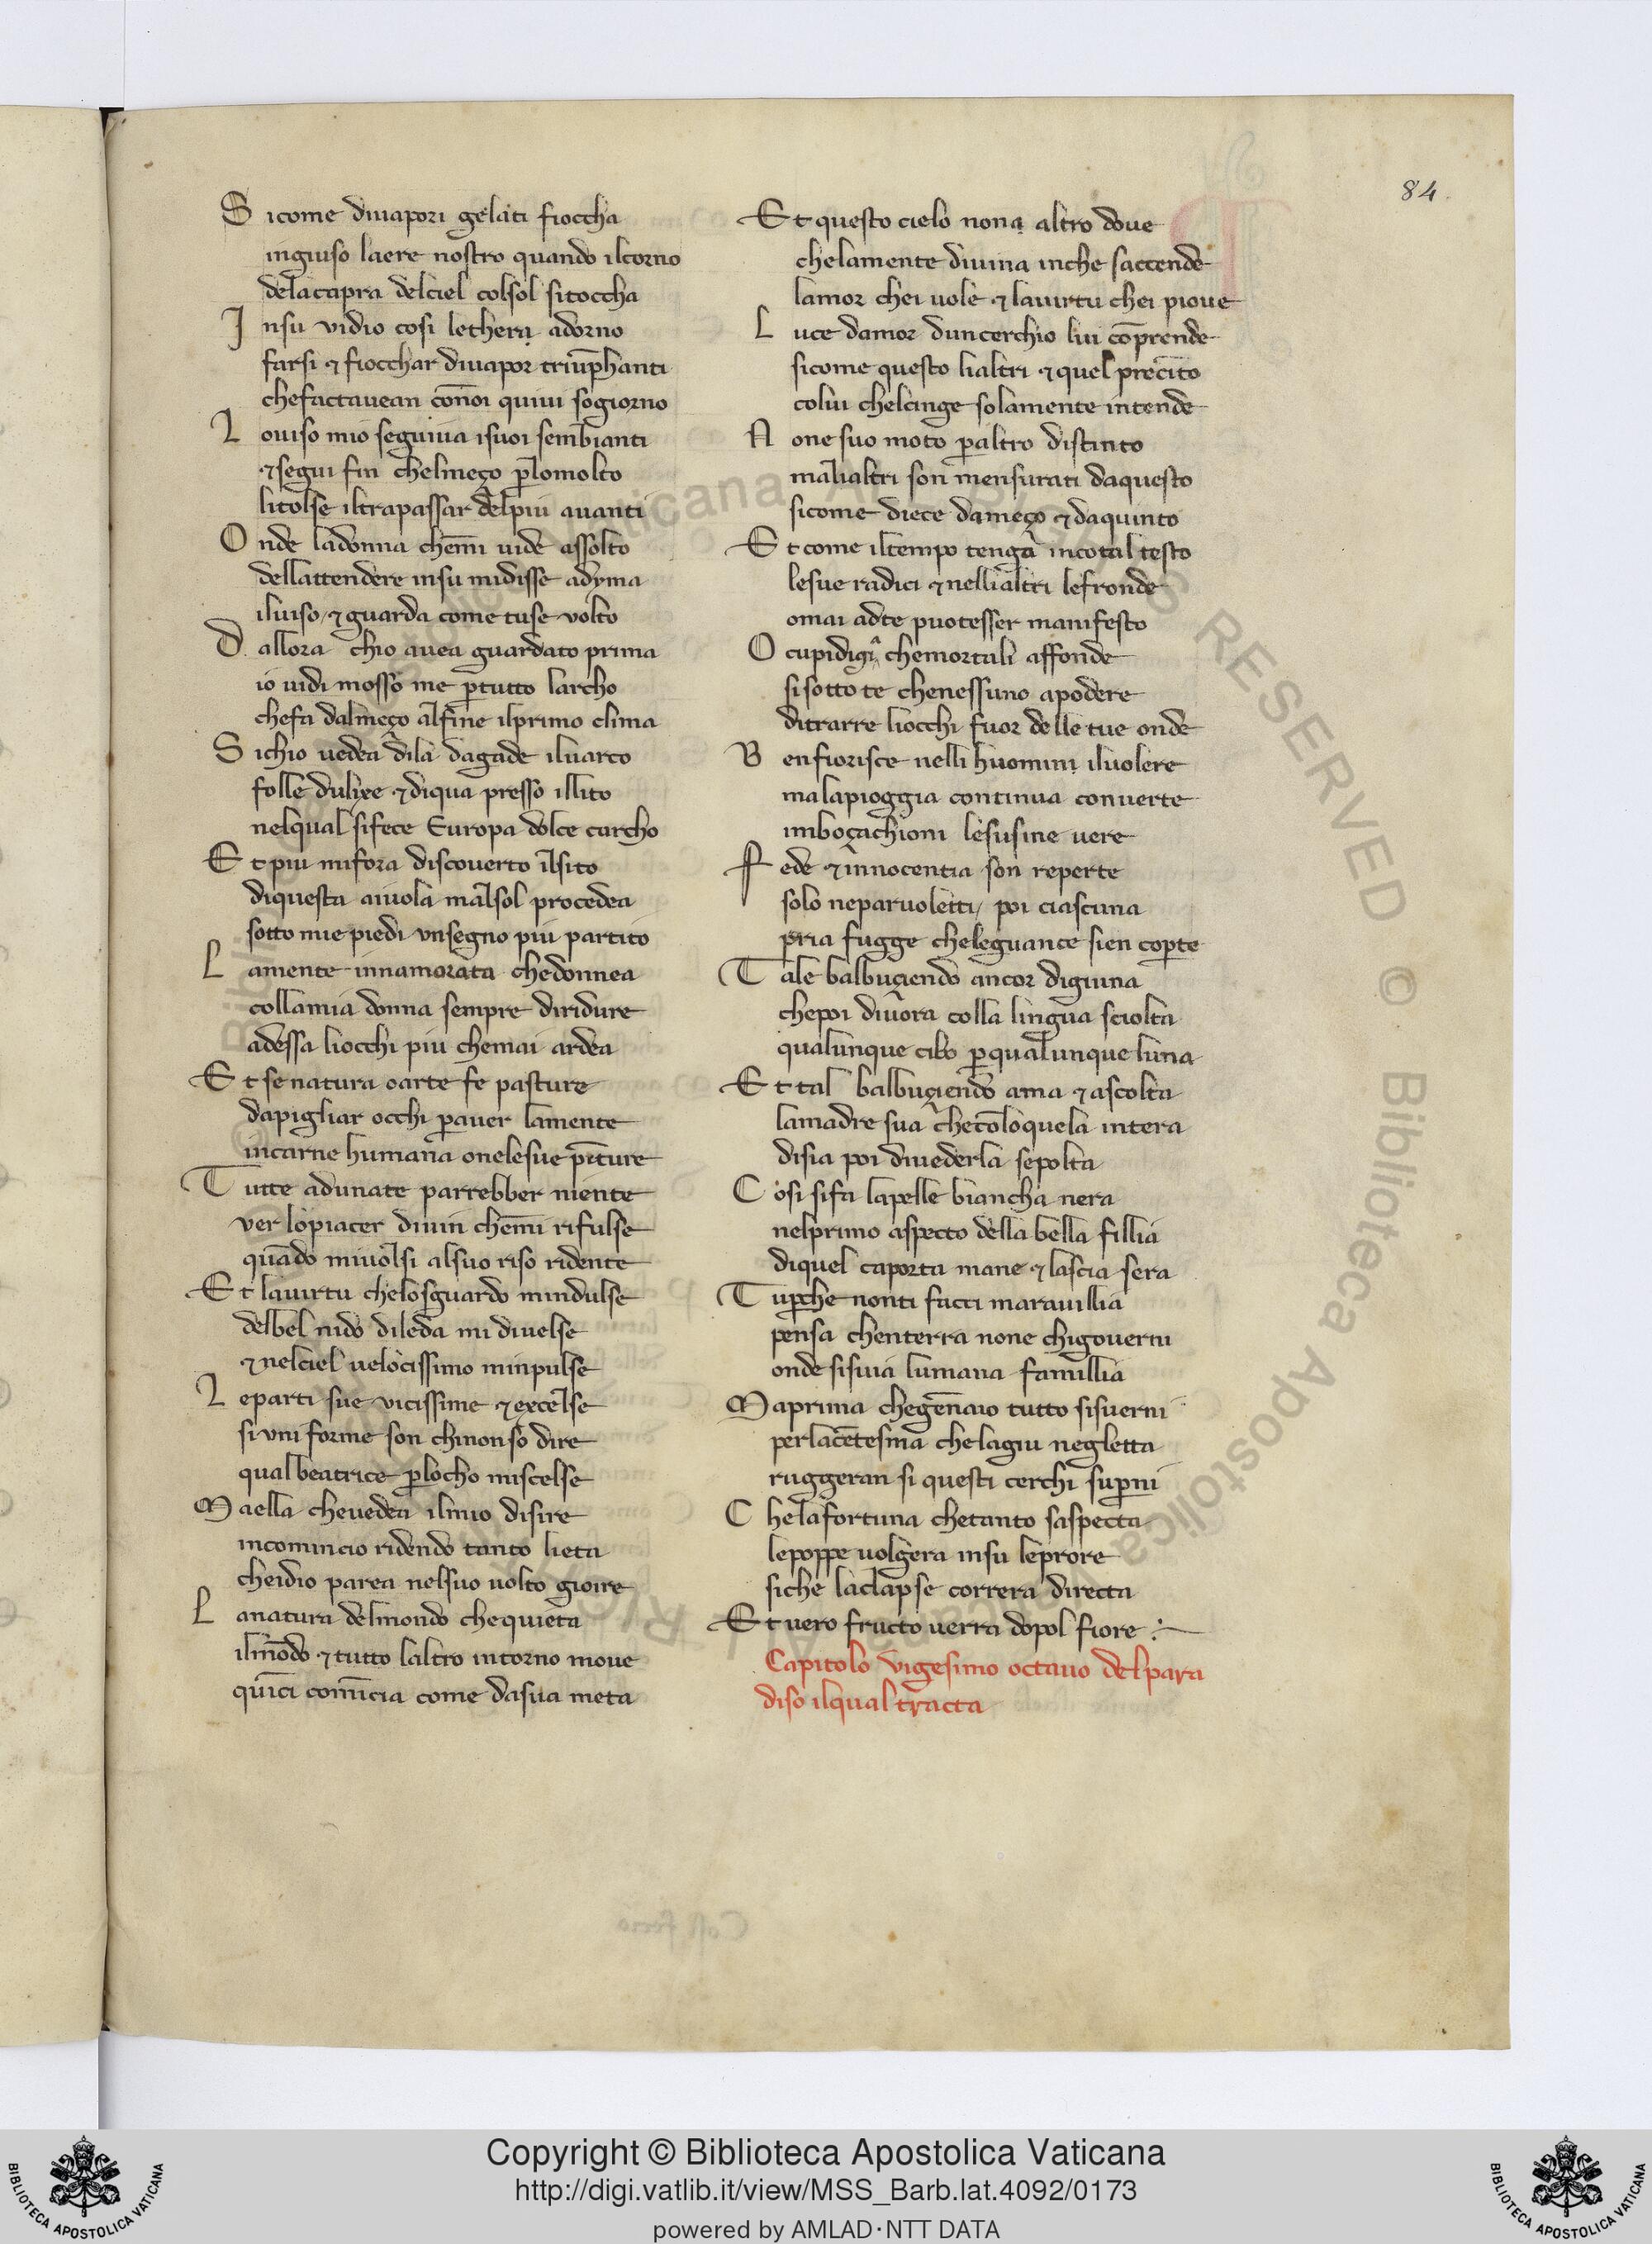 84.
S icome diuapori gelati fioccha
ingiuso laere nostro quando ilcorno
delacapra delciel colsol sitoccha
I nsu vidio cosi lethera adorno
farsi ⁊ fiocchar diuapor triu̅phanti
chefactauean con̅oi quiui sogiorno
L ouiso mio seguiua isuoi sembianti
⁊segui fin chelmeço p̱lomolto
litolse iltrapassar delpiu auanti
O nde ladonna chem̅i uide assolto
dellattendere insu midisse adyma
iluiso / ⁊ guarda come tuse volto
D allora chio auea guardato prima
io uidi mosso me p̱tutto larcho
chefa dalmeço alfine ilprimo clima
S ichio uedea dila dagade iluarco
folle dulixe ⁊diqua presso illito
nelqual sifece Europa dolce carcho
E t piu mifora discouerto ilsito
diquesta aiuola malsol procedea
sotto mie piedi vnsegno piu partito
L amente innamorata chedonnea
collamia donna sempre diridure
adessa liocchi piu chemai ardea
E t se natura oarte fe pasture
dapigliar occhi p̱auer lamente
incarne humana onelesue pi̅cture
T utte adunate parrebber niente
ver lopiacer diuin chem̅i rifulse
qua̅do miuolsi alsuo riso ridente
E t lauirtu chelosguardo mindulse
delbel nido dileda mi diuelse
⁊ nelciel uelocissimo minpulse
L eparti sue vicissime ⁊ excelse
si vniforme son chinonso dire
qualbeatrice p̱locho miscelse
M aella cheuedea ilmio disire
incomincio ridendo tanto lieta
cheidio parea nelsuo uolto gioire
L anatura delmondo chequieta
ilmo̅do ⁊ tutto laltro intorno moue
quici comi̅cia come dasua meta
E t questo cielo nona altro doue
chelamente diuina inche saccende
lamor chei uole ⁊ lauirtu chei pioue
L uce damor duncerchio lui co̅prende
sicome questo lialtri ⁊ quel preci̅to
colui chelcinge solamente intende
N one suo moto p̱altro distinto
malialtri son mensurati daquesto
sicome diece dameço ⁊ daquinto
E t come iltempo tenga incotal testo
lesue radici ⁊ nellialtri lefronde
omai adte puotesser manifesto
O cupidigia chemortali affonde
sisotto te chenessuno apodere
ditrarre liocchi fuor delle tue onde
B enfiorisce nelli huomini iluolere
malapioggia continua conuerte
imboçachioni lesusine uere
F ede ⁊ innocentia son reperte
solo neparuoletti / poi ciascuna
pria fugge cheleguance sien cop̱te
T ale balbuçiendo ancor digiuna
chepoi diuora colla lingua sciolta
qualunque cibo p̱qualunque luna
E t tal balbuçiendo ama ⁊ ascolta
lamadre sua checo̅loquela intera
disia poi diuederla sepolta
C osi sifa lapelle biancha nera
nelprimo aspecto della bella fillia
diquel caporta mane ⁊ lascia sera
T up̱che nonti facci marauillia
pensa chenterra none chigouerni
onde sisuia lumana famillia
M aprima chegen̅aio tutto sisuerni
perlace̅tesma chelagiu negletta
ruggeran si questi cerchi sup̱ni
C helafortuna chetanto saspecta
lepoppe uolgera insu leprore
siche laclapse correra directa
E t uero fructo uerra dopol fiore :
Capitolo vigesimo octauo delpara
diso ilqual tracta
Copyright © Biblioteca Apostolica Vaticana
http://digi.vatlib.it/view/MSS_Barb.lat.4092/0173
powered by AMLAD·NTT DATA
BIBLIOTECA APOSTOLICA VATICANA
BIBLIOTECA APOSTOLICA VATICANA